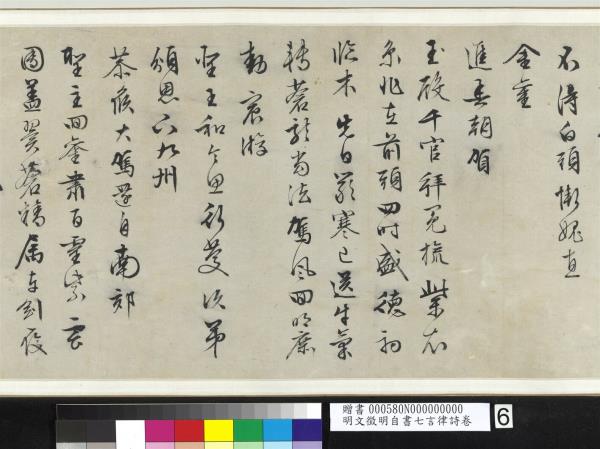 不得白頭慚媿直
金鑾
進春朝賀
玉殿千官拜冕旒紫衣
京兆在前頭四時盛德初
臨木先日嚴寒已送牛氣
轉蒼龍當法駕風回明庶
動宸游
聖王和令思次第
頒恩下九州
恭候大駕還自南郊
聖主回鑾肅百靈紫雲
圓蓋翼蒼精屬車劍履
贈書 000580N000000000
明文徵明自書七言律詩卷
6